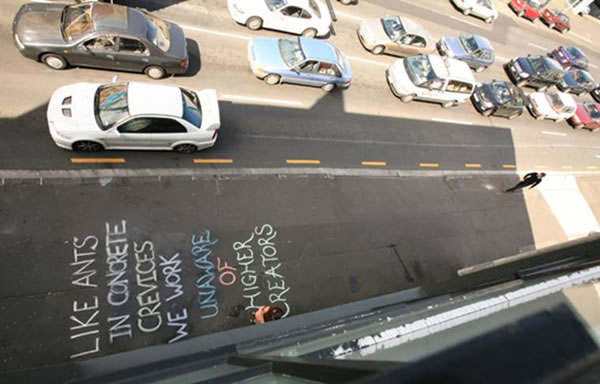 LIKE ANTS
IN CONCRETE
CREVICES
WE WORK
UNAWARE
OF
HIGHER
CREATORS